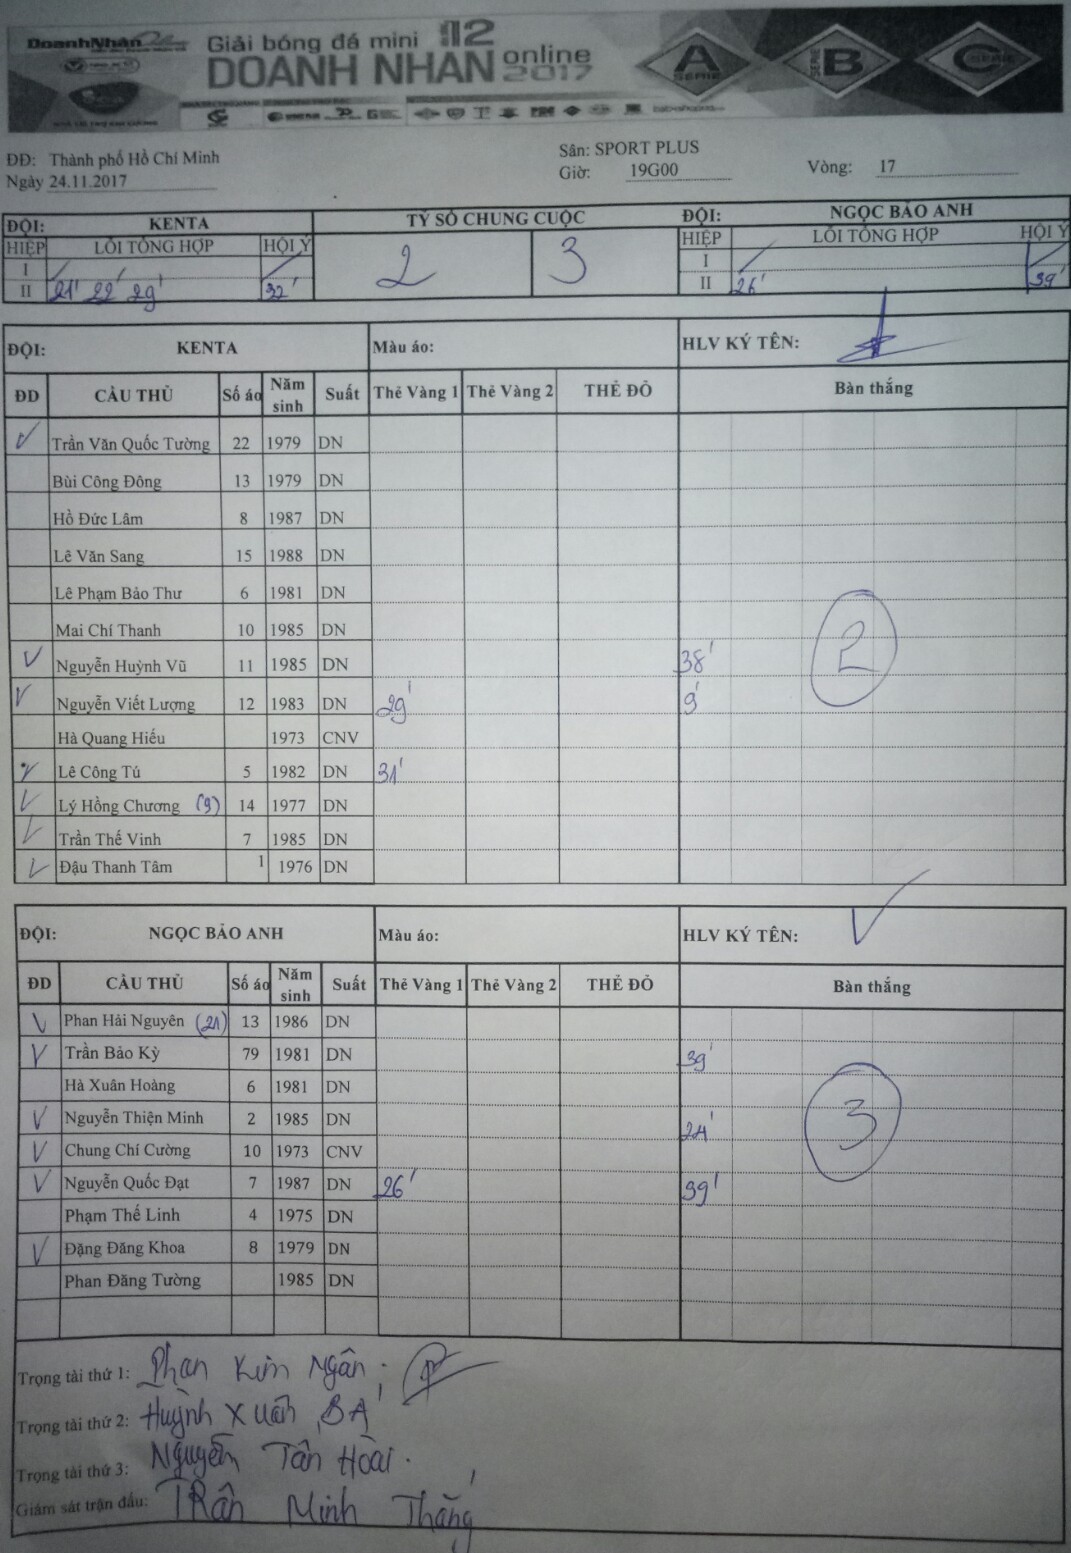 DoanhNhân
Giải bóng đá mini 12
DOANH NHÂN online 2017
A SERIE
SERIE B
C SERIE
ĐĐ: Thành phố Hồ Chí Minh
Sân: SPORT PLUS
Ngày 24.11.2017
Giờ: 19G00
Vòng: 17
ĐỘI: KENTA TỶ SỐ CHUNG CUỘC ĐỘI: NGỌC BẢO ANH
HIỆP LỖI TỔNG HỢP HỘI Ý 2 3 HIỆP LỖI TỔNG HỢP HỘI Ý
I I
II 21' 22' 29' 32' II 26' 39'
ĐỘI: KENTA Màu áo: HLV KÝ TÊN:
ĐD CẦU THỦ Số áo Năm sinh Suất Thẻ Vàng 1 Thẻ Vàng 2 THẺ ĐỎ Bàn thắng
Trần Văn Quốc Tường 22 1979 DN
Bùi Công Đông 13 1979 DN
Hồ Đức Lâm 8 1987 DN
Lê Văn Sang 15 1988 DN
Lê Phạm Bảo Thư 6 1981 DN
Mai Chí Thanh 10 1985 DN
2
Nguyễn Huỳnh Vũ 11 1985 DN 38'
Nguyễn Viết Lượng 12 1983 DN 29' 9'
Hà Quang Hiếu 1973 CNV
Lê Công Tú 5 1982 DN 31'
Lý Hồng Chương (9) 14 1977 DN
Trần Thế Vinh 7 1985 DN
Đậu Thanh Tâm 1 1976 DN
ĐỘI: NGỌC BẢO ANH Màu áo: HLV KÝ TÊN:
ĐD CẦU THỦ Số áo Năm sinh Suất Thẻ Vàng 1 Thẻ Vàng 2 THẺ ĐỎ Bàn thắng
Phan Hải Nguyên (21) 13 1986 DN
Trần Bảo Kỳ 79 1981 DN 39'
Hà Xuân Hoàng 6 1981 DN
Nguyễn Thiện Minh 2 1985 DN 24' 3
Chung Chí Cường 10 1973 CNV
Nguyễn Quốc Đạt 7 1987 DN 26' 39'
Phạm Thế Linh 4 1975 DN
Đặng Đăng Khoa 8 1979 DN
Phan Đăng Tường 1985 DN
Trọng tài thứ 1: Phan Kim Ngân
Trọng tài thứ 2: Huỳnh Xuân BA
Trọng tài thứ 3: Nguyễn Tân Hoài.
Giám sát trận đấu: TRần Minh Thắng